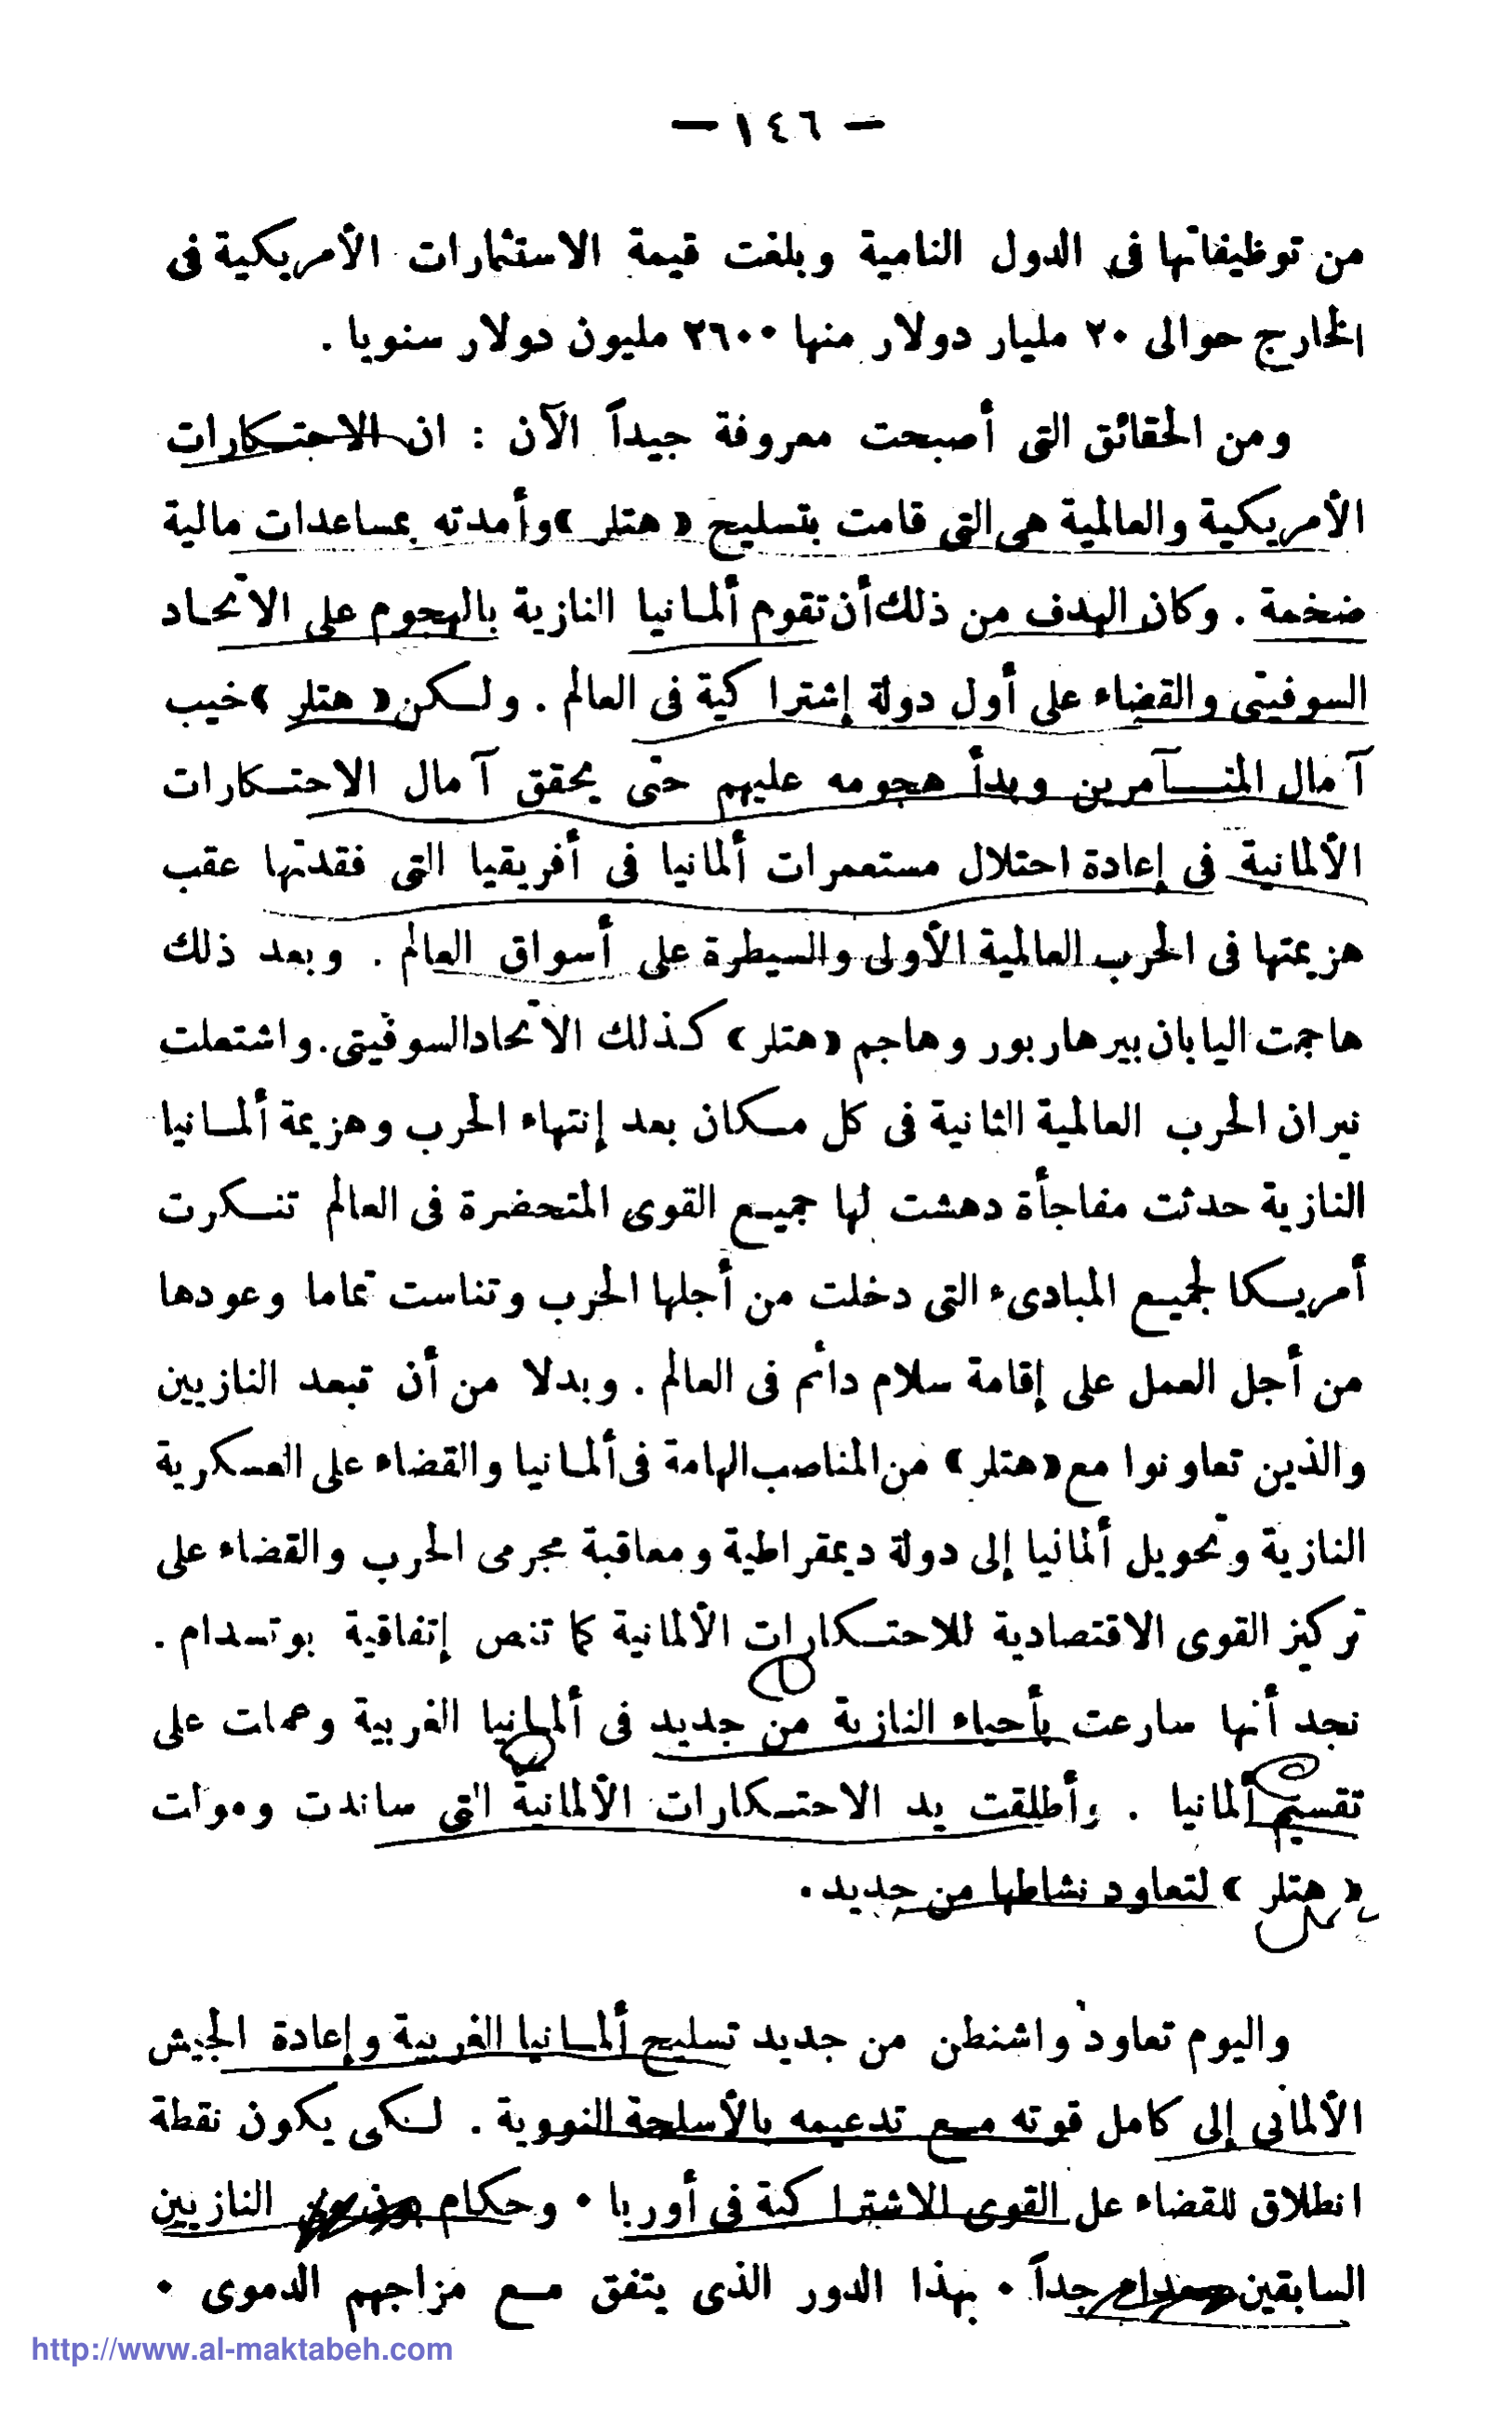 — ١٤٦ —
من توظيفاتها فى الدول النامية وبلغت قيمة الاستثمارات الأمريكية فى
الخارج حوالى ٢٠ مليار دولار منها ٢٦٠٠ مليون دولار سنويا .
ومن الحقائق التى أصبحت معروفة جيداً الآن : ان الاحتكارات
الأمريكية والعالمية هى التى قامت بتسليح « هتلر » وأمدته بمساعدات مالية
ضخمة . وكان الهدف من ذلك أن تقوم ألمانيا النازية بالهجوم على الاتحاد
السوفيتى والقضاء على أول دولة إشتراكية فى العالم . ولكن « هتلر » خيب
آمال المتآمرين وبدأ هجومه عليهم حتى يحقق آمال الاحتكارات
الألمانية فى إعادة احتلال مستعمرات ألمانيا فى أفريقيا التى فقدتها عقب
هزيمتها فى الحرب العالمية الأولى والسيطرة على أسواق العالم . وبعد ذلك
هاجمت اليابان بيرهاربور وهاجم « هتلر » كذلك الاتحاد السوفيتى . واشتعلت
نيران الحرب العالمية الثانية فى كل مكان بعد إنتهاء الحرب وهزيمة ألمانيا
النازية حدثت مفاجأة دهشت لها جميع القوى المتحضرة فى العالم تنكرت
أمريكا لجميع المبادىء التى دخلت من أجلها الحرب وتناست تماما وعودها
من أجل العمل على إقامة سلام دائم فى العالم . وبدلا من أن تبعد النازيين
والذين تعاونوا مع « هتلر » من المناصب الهامة فى ألمانيا والقضاء على العسكرية
النازية وتحويل ألمانيا إلى دولة ديمقراطية ومعاقبة مجرمى الحرب والقضاء على
تركيز القوى الاقتصادية للاحتكارات الألمانية كما تنص إتفاقية بوتسدام .
نجد أنها سارعت بأحياء النازية من جديد فى ألمانيا الغربية وعملت على
تقسيم ألمانيا . وأطلقت يد الاحتكارات الألمانية التى ساندت ومولت
« هتلر » لتعاود نشاطها من جديد .
واليوم تعاود واشنطن من جديد تسليح ألمانيا الغربية وإعادة الجيش
الألمانى إلى كامل قوته مع تدعيمه بالأسلحة النووية . لكى يكون نقطة
انطلاق للقضاء عل القوى الاشتراكية فى أوربا . وحكام النازيين
السابقين جداً . بهذا الدور الذى يتفق مع مزاجهم الدموى .
http://www.al-maktabeh.com